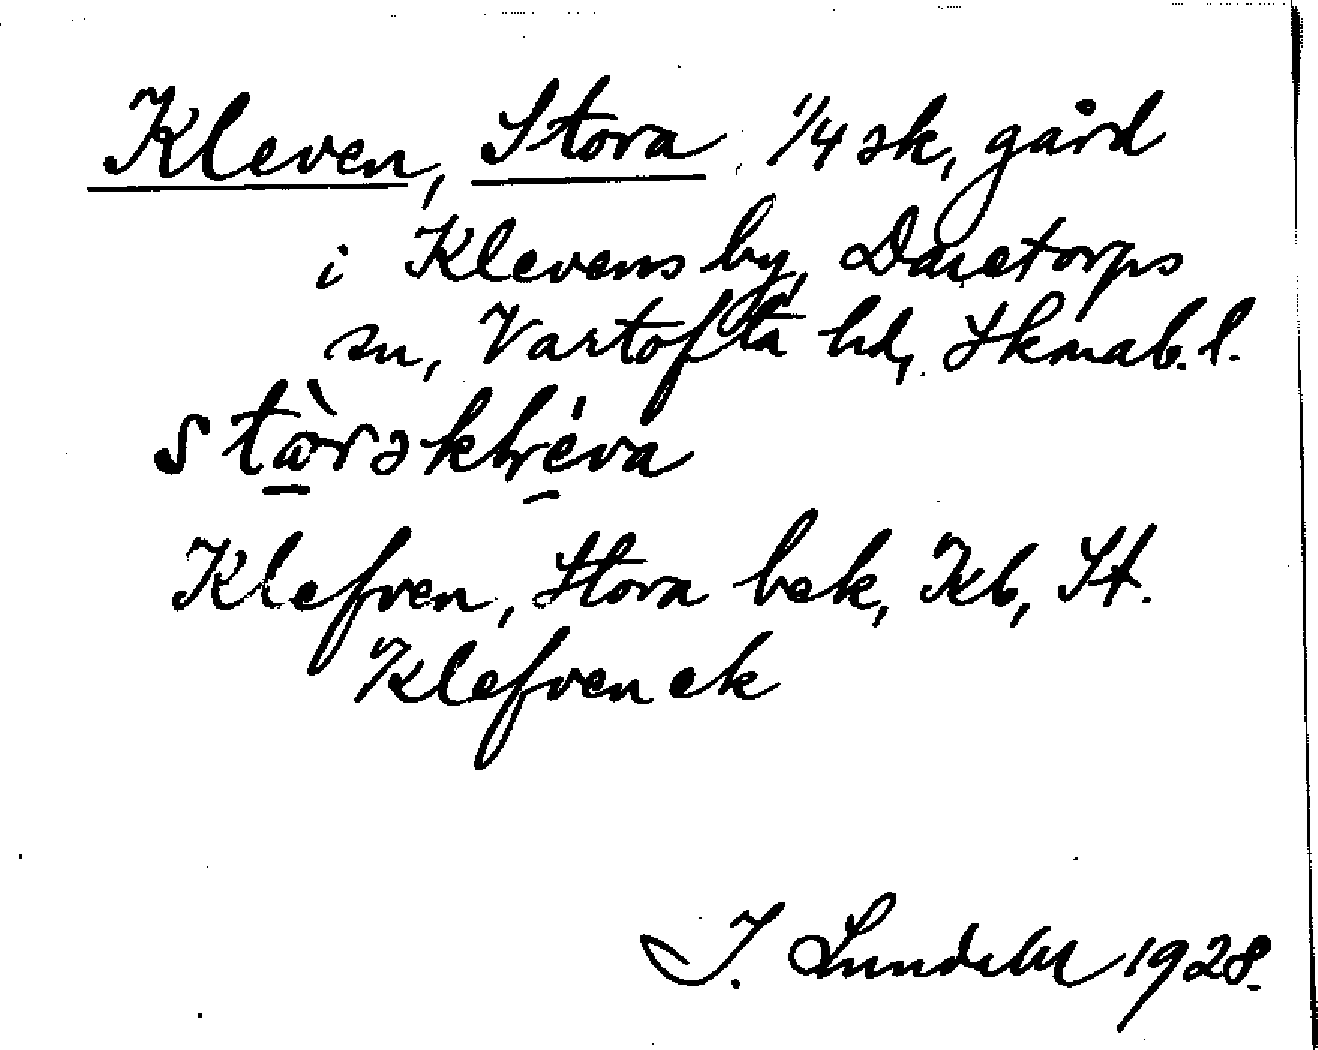 Kleven, Stora 1/4 sk, gård
i Klevens by, Daretorps
sn, Vartofta hd, Skarab. l.
Klefven, Stora bek, Kb, St.
Klefven ek
1928.